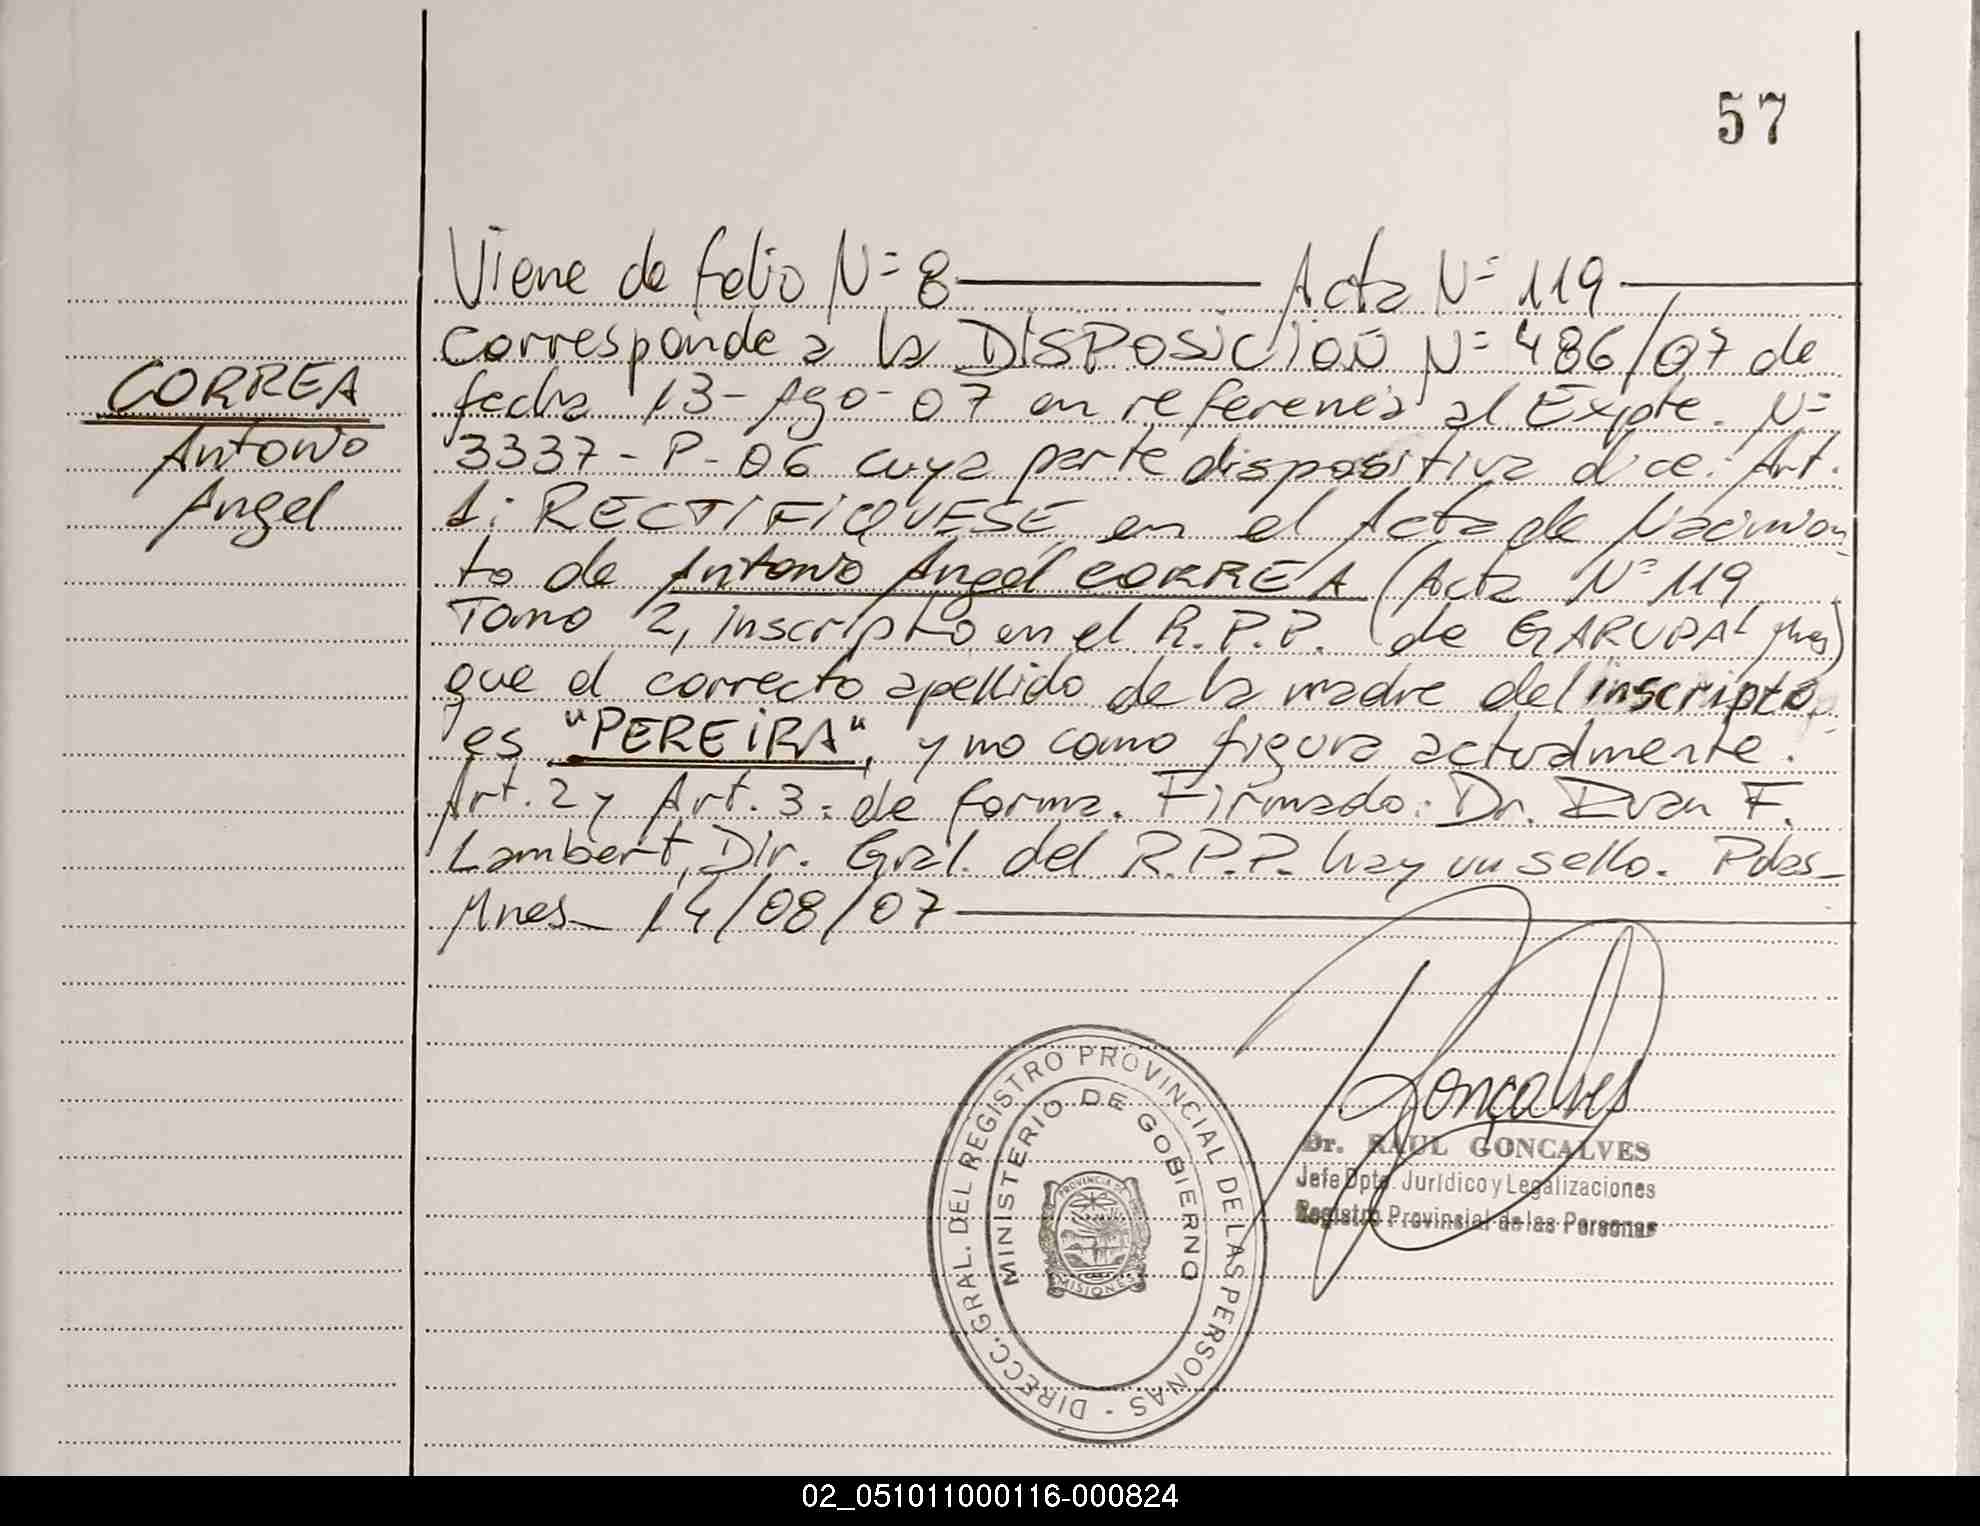 57
Viene de folio N= 8 Acta N= 119
corresponde a la DISPOSICION N= 486/07 de
CORREA
fecha 13-Ago-07 en referencia al Expte. N=
Antonio
3337-P-06 cuya parte dispositiva dice: Art.
Angel
1: RECTIFIQUESE en el Acta de Nacimien
to de Antonio Angel CORREA (Acta N= 119
Tomo 2, inscripto en el R.P.P. de GARUPA Mnes)
que el correcto apellido de la madre del inscripto
es "PEREIRA", y no como figura actualmente.
Art. 2 y Art. 3: de forma. Firmado: Dr. Ivan F.
Lambert, Dir. Gral. del R.P.P. hay un sello. Pdas-
Mnes- 14/08/07
Goncalves
Dr. RAUL GONCALVES
Jefe Dpto. Jurídico y Legalizaciones
Registro Provincial de las Personas
DIRECC. GRAL. DEL REGISTRO PROVINCIAL DE LAS PERSONAS -
MINISTERIO DE GOBIERNO
PROVINCIA DE
MISIONES
02_051011000116-000824